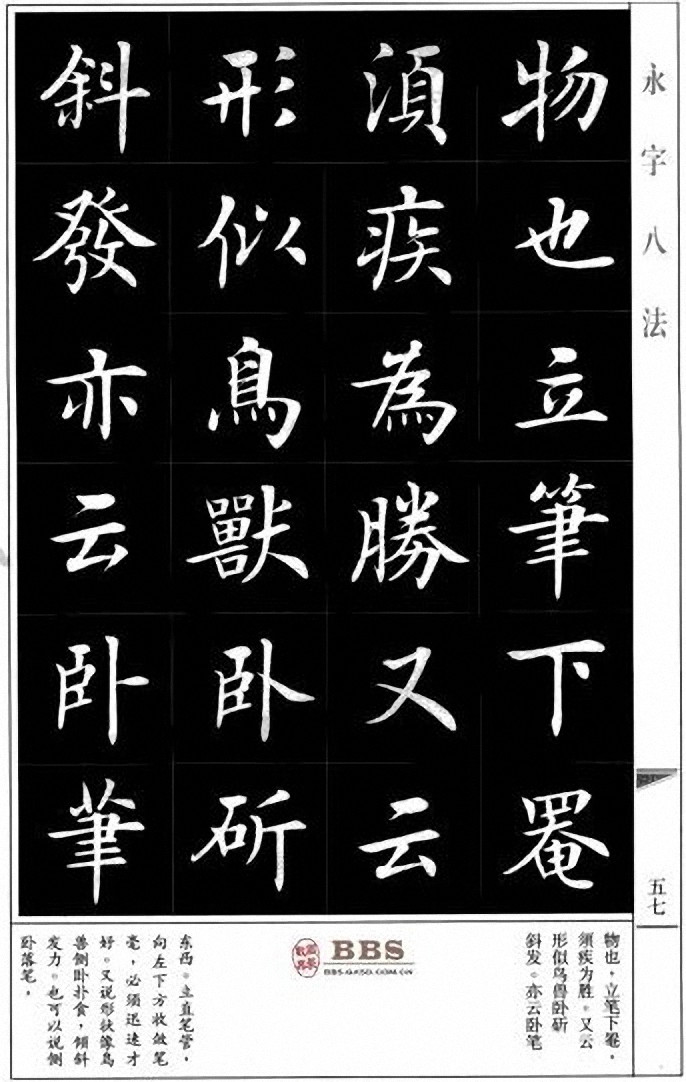 永字八法
五七
物也立筆下罨
湏疾為勝又云
形似鳥獸卧斫
斜發亦云卧筆
物也，立笔下罨，
须疾为胜。又云
形似鸟兽卧斫
斜发。亦云卧笔
BBS
东西。立直笔管，
向左下方收敛笔
毫，必须迅速才
好。又说形状像鸟
兽侧卧扑食，倾斜
发力。也可以说侧
卧落笔。